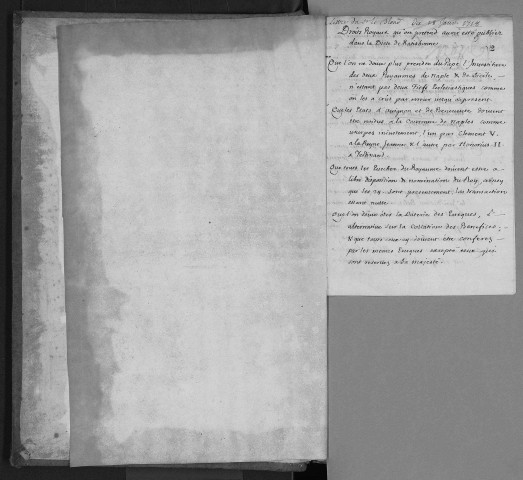 Lettre du Sr le Blond du 18 Janv. 1712
Droits Royaux qu'on pretend avoir esté publiéz
dans la Diete de
Que l'on ne doive plus prendre du Pape l'Investiture
des deux Royaumes de Naple & de Sicile,
n'estant pas deux Fiefs Ecclesiastiques comme
on les a crûs par erreur jusqu'apresent.
Que les Etats d'Avignon et de Benevento doivent
estre rendus a la Couronne de Naples comme
usurpez injustement l'un par Clement V.
a la Reyne Jeanne & l'autre par Honorius II
a
Que tous les Eveschez du Royaume doivent estre a
libre disposition & nomination du Roy,
que les 24. sont presentement, la transaction
estant nulle.
Que l'on doive oster la Daterie des Eveques, l'
alternative sur la collation des Benefices,
& que tous ceux cy doivent estre conferez
par les mesmes Eveques excepté ceux qui
sont reservez a Sa Majesté.